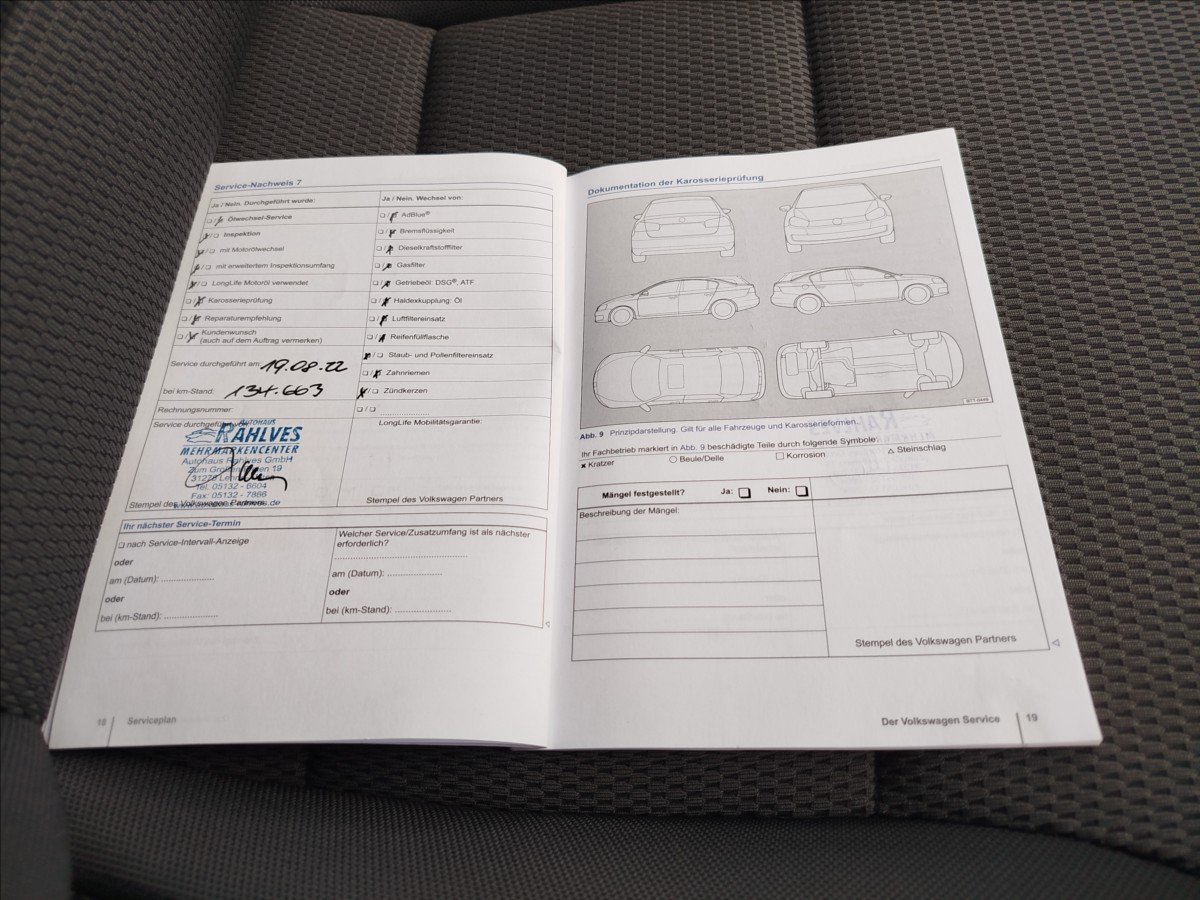 Service-Nachweis 7
Ja / Nein. Durchgeführt wurde:
Ölwechsel-Service
Inspektion
mit Motorölwechsel
mit erweitertem Inspektionsumfang
LongLife Motoröl verwendet
Karosserieprüfung
Reparaturempfehlung
Kundenwunsch
(auch auf dem Auftrag vermerken)
Service durchgeführt am: 19.08.22
bei km-Stand: 134.663
Rechnungsnummer:
Service durchgeführt
AUTOHAUS
RAHLVES
MEHRMARKENCENTER
Autohaus Rahlves GmbH
Tel. 05132 - 6604
Fax: 05132 - 7866
Stempel des Volkswagen Partners
Ja / Nein. Wechsel von:
AdBlue®
Bremsflüssigkeit
Dieselkraftstofffilter
Gasfilter
Getriebeöl: DSG®, ATF
Haldexkupplung: Öl
Luftfiltereinsatz
Reifenfüllflasche
Staub- und Pollenfiltereinsatz
Zahnriemen
Zündkerzen
LongLife Mobilitätsgarantie:
Stempel des Volkswagen Partners
Ihr nächster Service-Termin
nach Service-Intervall-Anzeige
oder
am (Datum): ....................
oder
bei (km-Stand): ....................
Welcher Service/Zusatzumfang ist als nächster
erforderlich?
am (Datum): ....................
oder
bei (km-Stand): ....................
18 Serviceplan
Dokumentation der Karosserieprüfung
BT1-0449
Abb. 9 Prinzipdarstellung. Gilt für alle Fahrzeuge und Karosserieformen.
Ihr Fachbetrieb markiert in Abb. 9 beschädigte Teile durch folgende Symbole:
Kratzer Beule/Delle Korrosion Steinschlag
Mängel festgestellt? Ja: Nein:
Beschreibung der Mängel:
Stempel des Volkswagen Partners
Der Volkswagen Service 19